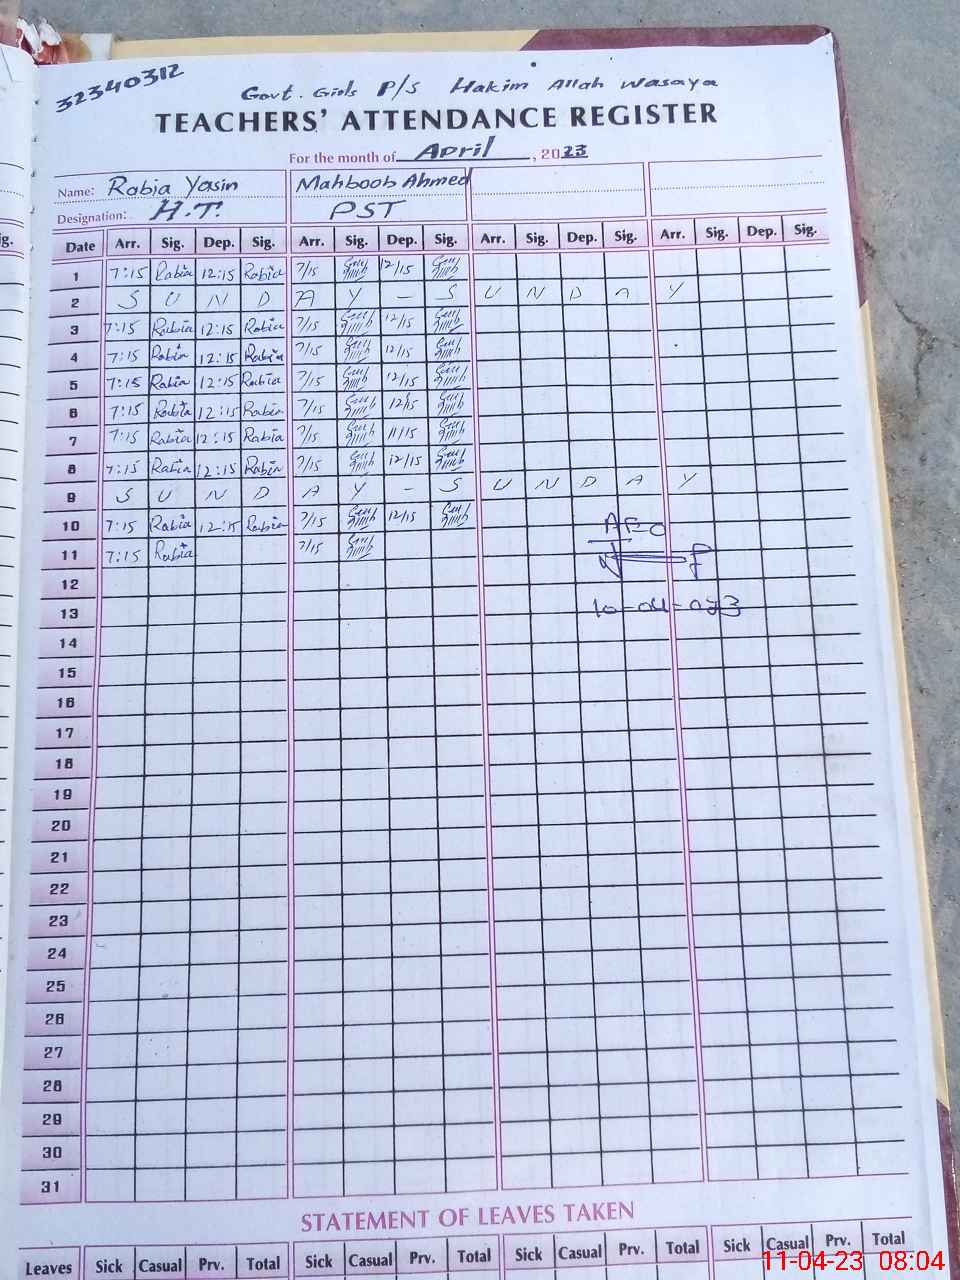 32340312
Govt. Girls P/S Hakim Allah Wasaya
TEACHERS' ATTENDANCE REGISTER
For the month of April, 2023
Name: Rabia Yasin Mahboob Ahmed
Designation: H.T. PST
Date Arr. Sig. Dep. Sig. Arr. Sig. Dep. Sig. Arr. Sig. Dep. Sig. Arr. Sig. Dep. Sig.
1 7:15 Rabia 12:15 Rabia 7/15 12/15
2 S U N D A Y - S U N D A Y
3 7:15 Rabia 12:15 Rabia 7/15 12/15
4 7:15 Rabia 12:15 Rabia 7/15 12/15
5 7:15 Rabia 12:15 Rabia 7/15 12/15
6 7:15 Rabia 12:15 Rabia 7/15 12/15
7 7:15 Rabia 12:15 Rabia 7/15 11/15
8 7:15 Rabia 12:15 Rabia 7/15 12/15
9 S U N D A Y - S U N D A Y
10 7:15 Rabia 12:15 Rabia 7/15 12/15
11 7:15 Rabia 7/15
12
13
14
15
16
17
18
19
20
21
22
23
24
25
26
27
28
29
30
31
STATEMENT OF LEAVES TAKEN
Leaves Sick Casual Prv. Total Sick Casual Prv. Total Sick Casual Prv. Total Sick Casual Prv. Total
11-04-23 08:04